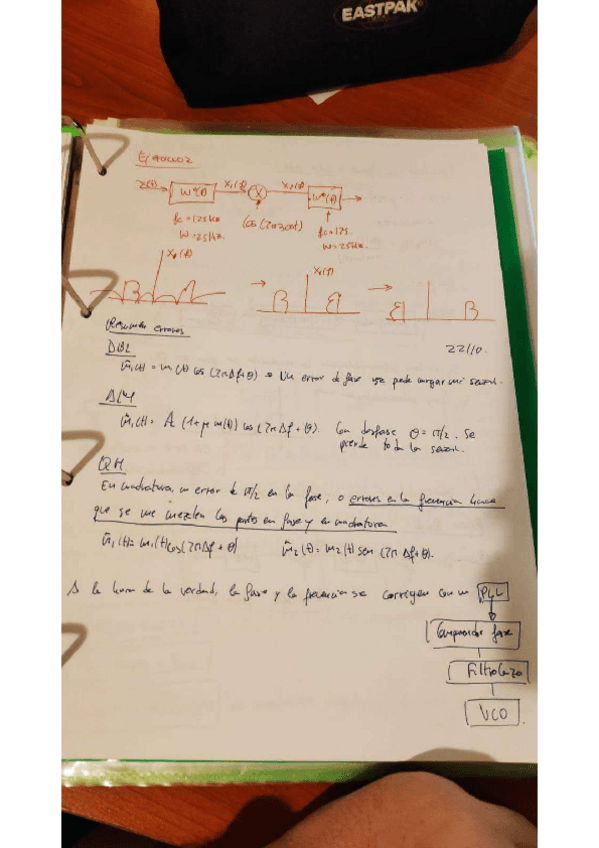 EASTPAK
Ejercicio 2
z(t) → W(f) X₁(f) X X₂(f) W(f) →
fc = 125Hz cos(2π300t) fc = 175
W = 25Hz. W = 25Hz.
X₁(f) X₂(f)
→ →
Resumen errores
22/10.
DBL
m̂₁(t) = m₁(t) cos(2πΔf+θ) → Un error de fase se puede cargar mi señal.
m̂₁(t) = A (1+μm(t)) cos(2πΔf+θ). Con desfase θ = π/2. Se
pierde toda la señal.
QM
En cuadratura, un error de π/2 en la fase, o errores en la frecuencia hacen
que se me mezclen las partes en fase y en cuadratura
m̂₁(t) = m₁(t)cos(2πΔf+θ) m̂₂(t) = m₂(t) sen (2πΔf+θ).
A la hora de la verdad, la fase y la frecuencia se corrigen con un PLL
Comparador fase
Filtro lazo
VCO